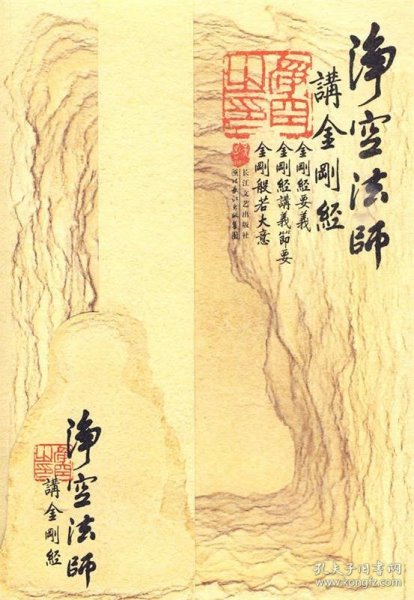 淨空法師
講金剛經
金剛經要義
金剛經講義節要
金剛般若大意
长江文艺出版社
湖北长江出版集團
淨空法師
講金剛經
孔夫子旧书网
www.kongfz.com